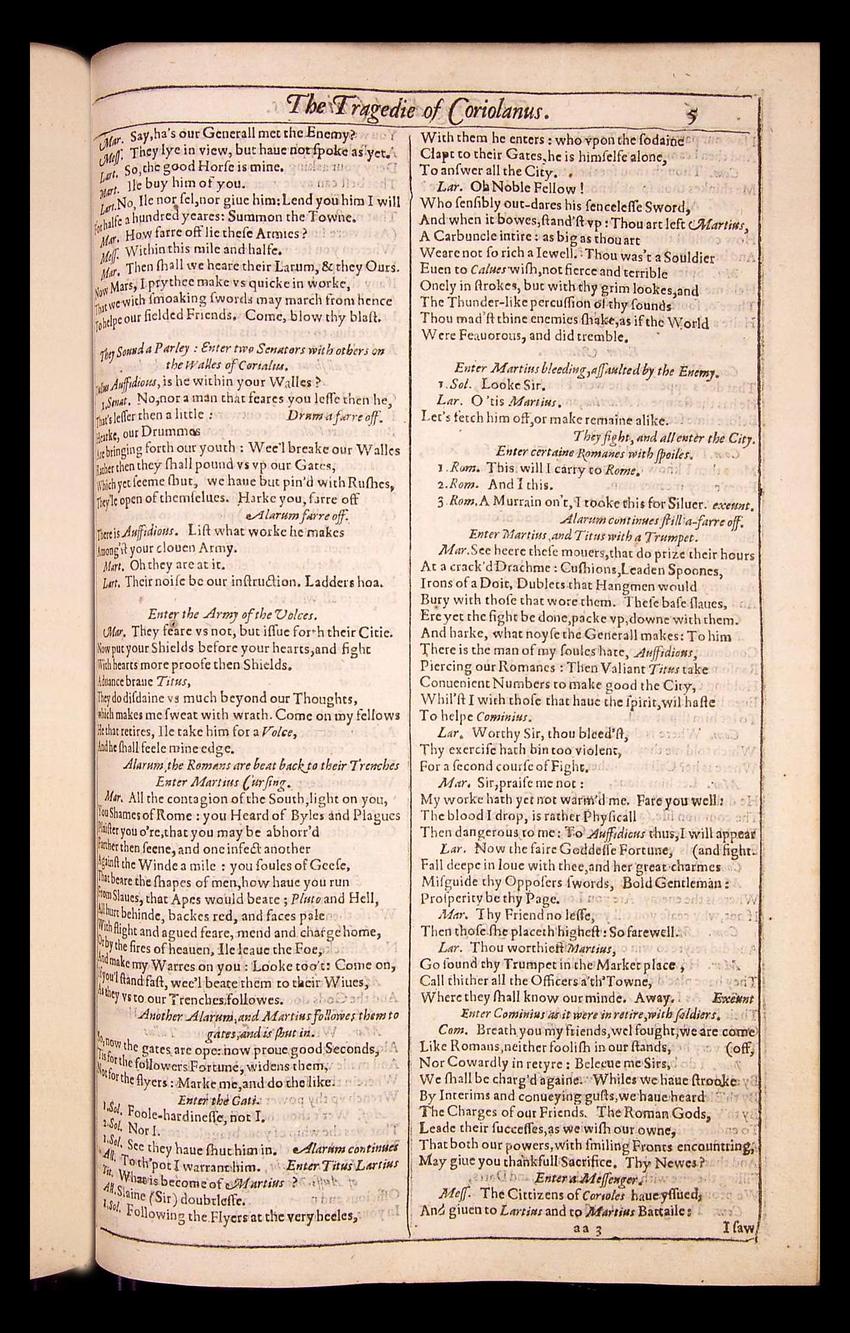 The Tragedie of Coriolanus. 5
Mar. Say, ha's our Generall met the Enemy?
Mess. They lye in view, but haue not spoke as yet.
Lart. So, the good Horse is mine.
Mart. Ile buy him of you.
Lart. No, Ile nor sel, nor giue him: Lend you him I will
For halfe a hundred yeares: Summon the Towne.
Mar. How farre off lie these Armies?
Mess. Within this mile and halfe.
Mar. Then shall we heare their Larum, & they Ours.
Now Mars, I prythee make vs quicke in worke,
That we with smoaking swords may march from hence
To helpe our fielded Friends. Come, blow thy blast.
They Sound a Parley: Enter two Senators with others on
the Walles of Corialus.
Tullus Auffidious, is he within your Walles?
1. Senat. No, nor a man that feares you lesse then he,
That's lesser then a little: Drum a farre off.
Hearke, our Drummes
Are bringing forth our youth: Wee'l breake our Walles
Rather then they shall pound vs vp our Gates,
Which yet seeme shut, we haue but pin'd with Rushes,
They'le open of themselues. Harke you, farre off
Alarum farre off.
There is Auffidious. List what worke he makes
Among'st your clouen Army.
Mart. Oh they are at it.
Lart. Their noise be our instruction. Ladders hoa.
Enter the Army of the Volces.
Mar. They feare vs not, but issue forth their Citie.
Now put your Shields before your hearts, and fight
With hearts more proofe then Shields.
Aduance braue Titus,
They do disdaine vs much beyond our Thoughts,
which makes me sweat with wrath. Come on my fellows
He that retires, Ile take him for a Volce,
And he shall feele mine edge.
Alarum, the Romans are beat back to their Trenches
Enter Martius Cursing.
Mar. All the contagion of the South, light on you,
You Shames of Rome: you Heard of Byles and Plagues
Plaister you o're, that you may be abhorr'd
Farther then seene, and one infect another
Against the Winde a mile: you soules of Geese,
That beare the shapes of men, how haue you run
From Slaues, that Apes would beate; Pluto and Hell,
All hurt behinde, backes red, and faces pale
With flight and agued feare, mend and charge home,
Or by the fires of heauen, Ile leaue the Foe,
And make my Warres on you: Looke too't: Come on,
If you'l stand fast, wee'l beate them to their Wiues,
As they vs to our Trenches followes.
Another Alarum, and Martius followes them to
gates, and is shut in.
So, now the gates are ope: now proue good Seconds,
'Tis for the followers Fortune, widens them,
Not for the flyers: Marke me, and do the like.
Enter the Gati.
1. Sol. Foole-hardinesse, not I.
2. Sol. Nor I.
1. Sol. See they haue shut him in. Alarum continues
All. To th'pot I warrant him. Enter Titus Lartius
Tit. What is become of Martius?
All. Slaine (Sir) doubtlesse.
1. Sol. Following the Flyers at the very heeles,
With them he enters: who vpon the sodaine
Clapt to their Gates, he is himselfe alone,
To answer all the City.
Lar. Oh Noble Fellow!
Who sensibly out-dares his sencelesse Sword,
And when it bowes, stand'st vp: Thou art left Martius,
A Carbuncle intire: as big as thou art
Weare not so rich a Iewell. Thou was't a Souldier
Euen to Calues wish, not fierce and terrible
Onely in strokes, but with thy grim lookes, and
The Thunder-like percussion of thy sounds
Thou mad'st thine enemies shake, as if the World
Were Feauorous, and did tremble.
Enter Martius bleeding, assaulted by the Enemy.
1. Sol. Looke Sir.
Lar. O 'tis Martius.
Let's fetch him off, or make remaine alike.
They fight, and all enter the City.
Enter certaine Romanes with spoiles.
1. Rom. This will I carry to Rome.
2. Rom. And I this.
3. Rom. A Murrain on't, I tooke this for Siluer. exeunt.
Alarum continues still a-farre off.
Enter Martius, and Titus with a Trumpet.
Mar. See heere these mouers, that do prize their hours
At a crack'd Drachme: Cushions, Leaden Spoones,
Irons of a Doit, Dublets that Hangmen would
Bury with those that wore them. These base slaues,
Ere yet the fight be done, packe vp, downe with them.
And harke, what noyse the Generall makes: To him
There is the man of my soules hate, Auffidious,
Piercing our Romanes: Then Valiant Titus take
Conuenient Numbers to make good the City,
Whil'st I with those that haue the spirit, wil haste
To helpe Cominius.
Lar. Worthy Sir, thou bleed'st,
Thy exercise hath bin too violent,
For a second course of Fight.
Mar. Sir, praise me not:
My worke hath yet not warm'd me. Fare you well:
The blood I drop, is rather Physicall
Then dangerous to me: To Auffidious thus, I will appear
Lar. Now the faire Goddesse Fortune, (and fight.
Fall deepe in loue with thee, and her great charmes
Misguide thy Opposers swords, Bold Gentleman:
Prosperity be thy Page.
Mar. Thy Friend no lesse,
Then those she placeth highest: So farewell.
Lar. Thou worthiest Martius,
Go sound thy Trumpet in the Market place,
Call thither all the Officers a'th'Towne,
Where they shall know our minde. Away. Exeunt
Enter Cominius as it were in retire, with soldiers.
Com. Breath you my friends, wel fought, we are come
Like Romans, neither foolish in our stands, (off,
Nor Cowardly in retyre: Beleeue me Sirs,
We shall be charg'd againe. Whiles we haue strooke
By Interims and conueying gusts, we haue heard
The Charges of our Friends. The Roman Gods,
Leade their successes, as we wish our owne,
That both our powers, with smiling Fronts encountring,
May giue you thankfull Sacrifice. Thy Newes?
Enter a Messenger.
Mess. The Cittizens of Corioles haue yssued,
And giuen to Lartius and to Martius Battaile:
aa 3 I saw